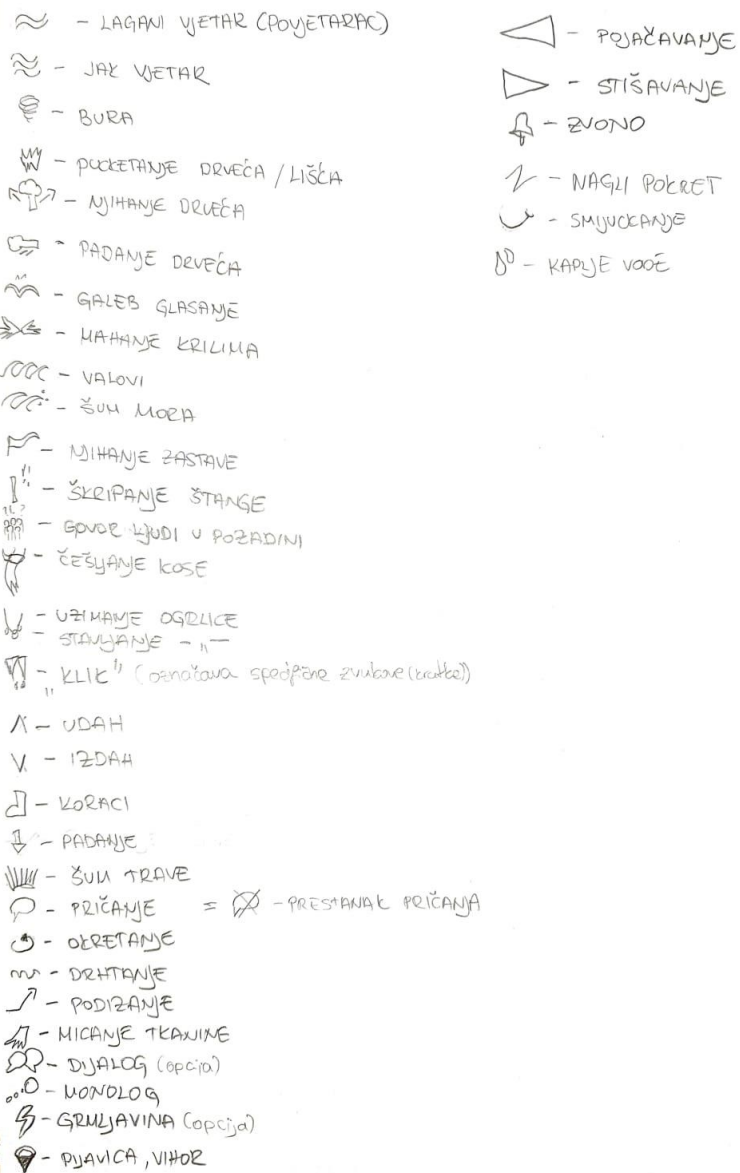 - LAGANI VJETAR (POVJETARAC)
- JAK VJETAR
- BURA
- PUCKETANJE DRVEĆA / LIŠĆA
- NJIHANJE DRVEĆA
- PADANJE DRVEĆA
- GALEB GLASANJE
- MAHANJE KRILIMA
- VALOVI
- ŠUM MORA
- NJIHANJE ZASTAVE
- ŠKRIPANJE ŠTANGE
- GOVOR LJUDI U POZADINI
- ČEŠLJANJE KOSE
- UZIMANJE OGRLICE
- STAVLJANJE -"-
- "KLIK" (označava specifične zvukove (kratke))
- UDAH
- IZDAH
- KORACI
- PADANJE
- ŠUM TRAVE
- PRIČANJE = - PRESTANAK PRIČANJA
- OKRETANJE
- DRHTANJE
- PODIZANJE
- MICANJE TKANINE
- DIJALOG (opcija)
- MONOLOG
- GRMLJAVINA (opcija)
- PIJAVICA, VIHOR
- POJAČAVANJE
- STIŠAVANJE
- ZVONO
- NAGLI POKRET
- SMIJUCKANJE
- KAPLJE VODE